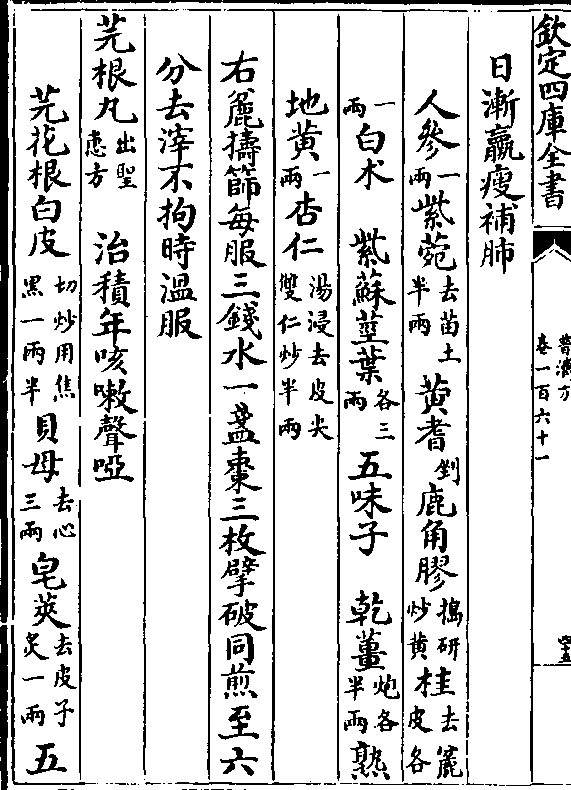 欽定四庫全書
普濟方
卷一百六十一
日漸羸瘦補肺
人參一兩紫菀去苗土半兩黄耆剉鹿角膠搗研炒黄桂去麄皮各
一兩白术 紫蘇莖葉各三兩五味子 乾薑炮各半兩熟
地黄一兩杏仁湯浸去皮尖雙仁炒半兩
右麄擣篩每服三錢水一盞棗三枚擘破同煎至六
分去滓不拘時温服
芫根丸出聖惠方 治積年咳嗽聲啞
芫花根白皮切炒用焦黑一兩半貝母去心三兩皂莢去皮子炙一兩五